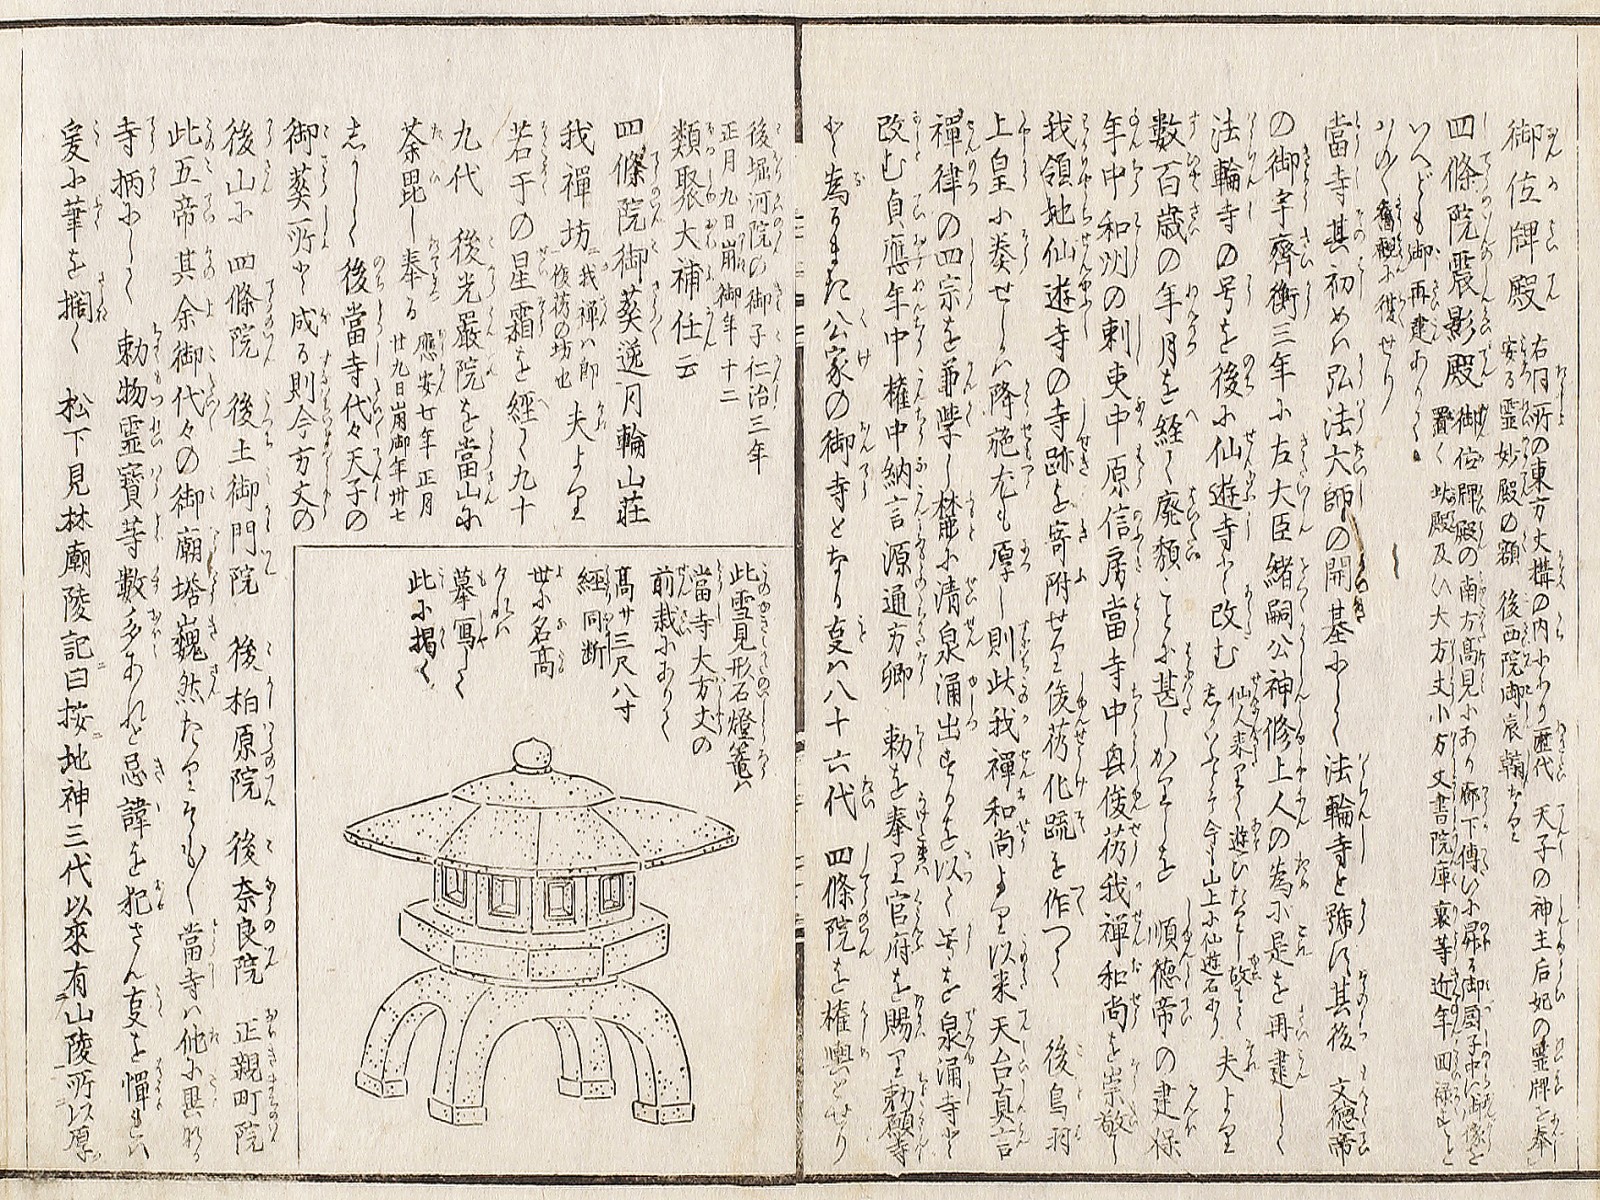 御位牌殿 右同所の東方大構の内にあり歴代 天子の神主后妃の霊牌を奉
安る霊妙殿の額 後西院御宸翰なり
四條院震影殿 御位牌殿の南方高見にあり廊下傳ひに昇る御厨子中に御像を
置く 此殿及ひ大方丈小方丈書院庫裏等近年回禄すと
いへども御再建ありて
舊觀に復せり
當寺其初めは弘法大師の開基にして 法輪寺と號け其後 文徳帝
の御宇齊衡三年に左大臣緒嗣公神修上人の為に是を再建し
法輪寺の号を後に仙遊寺と改む 仙人来りて遊ひたりし故に
しかいふとそ今も山上に仙遊石あり 夫より
数百歳の年月を経て廃頽ことに甚しかりしを 順徳帝の建保
年中和州の刺吏中原信房當寺中興俊芿我禅和尚を崇敬し
我領地仙遊寺の寺跡を寄附せり俊芿化疏を作つて 後鳥羽
上皇に奏せしは降施尤も厚し則此我禅和尚より以来天台真言
禅律の四宗を兼學し麓に清泉涌出するを以て号を泉涌寺と
改む貞應年中権中納言源通方卿 勅を奉り官府を賜り勅願寺
と為るまた公家の御寺となる事は八十六代 四條院を權輿とせり
後堀河院の御子仁治三年
正月九日崩御年十二
類聚大補任云
四條院御葬逸月輪山荘
我禅坊 我禅は即
俊芿の坊也 夫より
若干の星霜を經て九十
九代 後光嚴院を當山に
荼毘し奉る 應安七年正月
廿九日崩御年卅七
しかして後當寺代々天子の
御葬所と成る則今方丈の
後山に四條院 後土御門院 後柏原院 後奈良院 正親町院
此五帝其余御代々の御廟塔巍然たりそもそも當寺は他に異なる
寺柄にして 勅物霊寶等數多あれど忌諱を犯さん事を憚れは
爰に筆を擱く 松下見林廟陵記曰按地神三代以來有山陵所レ原
此雪見形石燈篭は
當寺大方丈の
前栽にありて
高サ三尺八寸
經 同断
世に名高
けれは
摹冩して
此に掲く